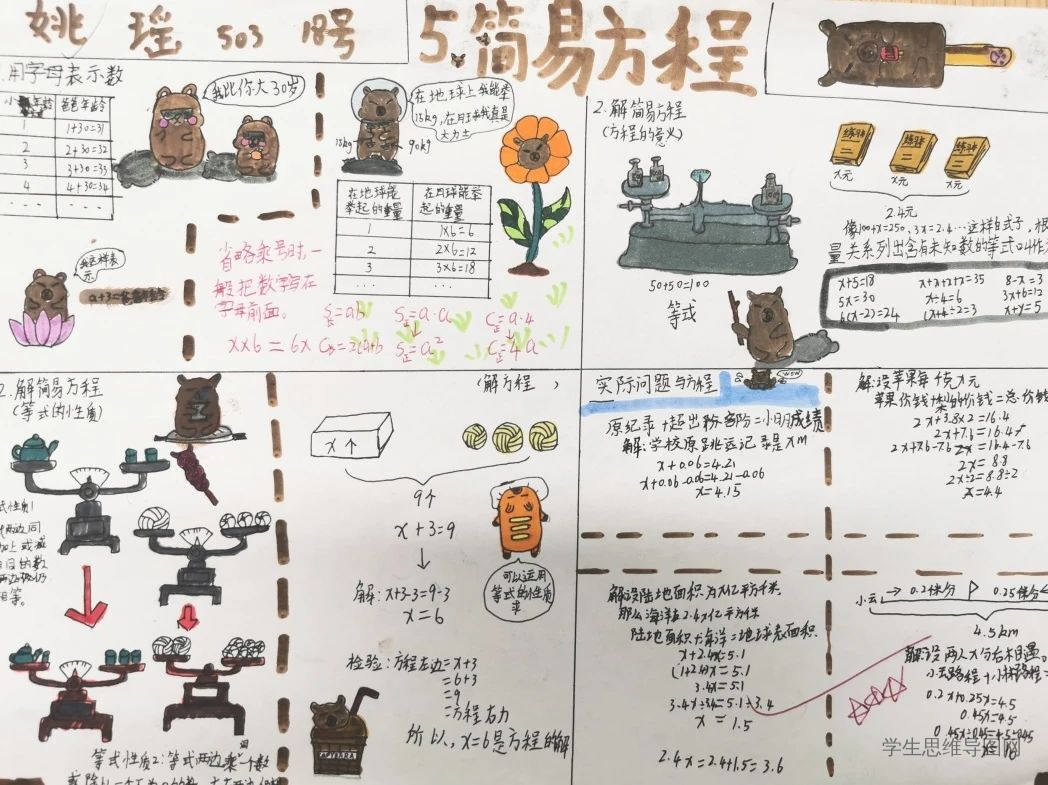 姚瑶 503 18号
5.简易方程
用字母表示数
爸爸年龄
1 1+30=31
2 2+30=32
3 3+30=33
4 4+30=34
... ...
我比你大30岁
在地球上我能举
15kg,在月球我真是
大力士
15kg
90kg
在地球能举起的重量 在月球能举起的重量
1 1×6=6
2 2×6=12
3 3×6=18
... ...
a+3=
省略乘号时,一
般把数字写在
字母前面。
x×6=6x
S=ab
S=a·a
C=a·4
S=a²
C=4a
2.解简易方程
(方程的意义)
练习本
练习本
练习本
x元
x元
x元
2.4元
50+50=100
等式
像100+x=250,3x=2.4…这样的式子,根
量关系列出含有未知数的等式叫作
x+5=18 x+x+x+x=35 8-x=3
5x=30 x÷4=6 3x+6=12
6(x-2)=24 (x+4)÷2=3 x+y=5
2.解简易方程
(等式的性质)
式性质1
两边同
加上或减
的数
两边仍
相等。
等式性质2:等式两边乘同一个数
(解方程)
x个
9个
x+3=9
解:x+3-3=9-3
x=6
可以运用
等式的性质
求
检验:方程左边=x+3
=6+3
=9
=方程右边
所以,x=6是方程的解
实际问题与方程
wow
原纪录+超出部分=小明成绩
解:学校原跳远记录是xm
x+0.06=4.21
x+0.06-0.06=4.21-0.06
x=4.15
解:设苹果每千克x元
苹果价钱+梨的价钱=总价钱
2x+3.8×2=16.4
2x+7.6=16.4
2x+7.6-7.6=16.4-7.6
2x=8.8
2x÷2=8.8÷2
x=4.4
解:设陆地面积为x亿平方千米
那么海洋为2.4x亿平方千米
陆地面积+海洋=地球表面积
x+2.4x=5.1
(1+2.4)x=5.1
3.4x=5.1
3.4x÷3.4=5.1÷3.4
x=1.5
2.4x=2.4×1.5=3.6
小云
0.2km/分
0.25km/分
4.5km
解:设两人x分后相遇。
小云路程+小林路程=
0.2x+0.25x=4.5
0.45x=4.5
0.45x÷0.45=4.5÷0.45
学生思维导图网